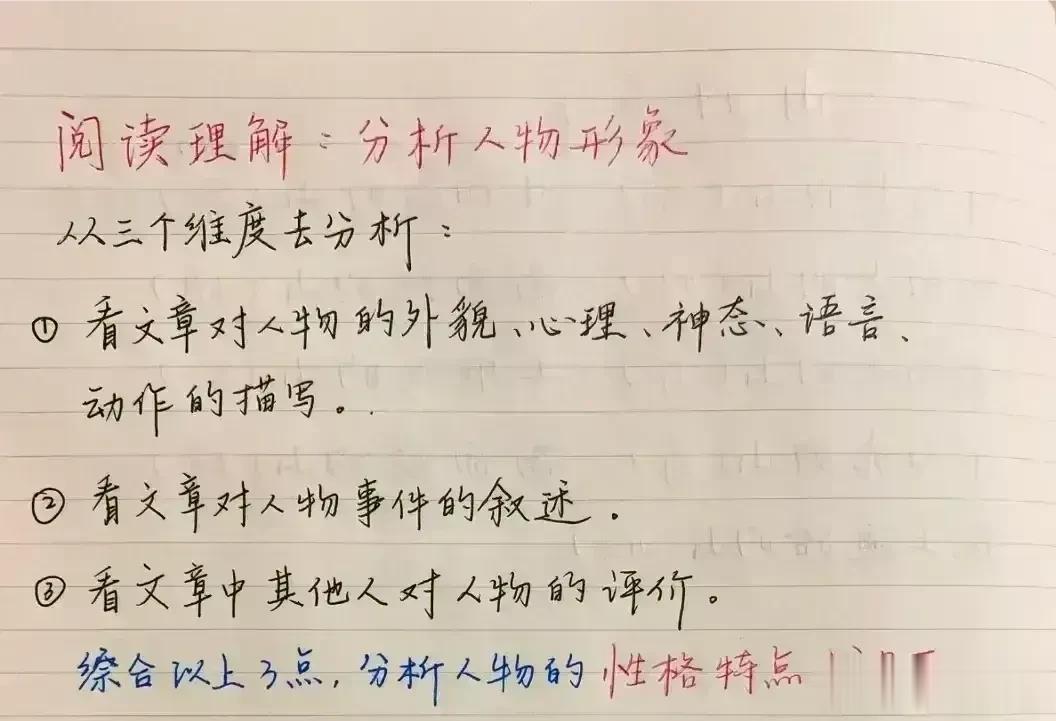 阅读理解：分析人物形象
从三个维度去分析：
① 看文章对人物的外貌、心理、神态、语言、
动作的描写。
② 看文章对人物事件的叙述.
③ 看文章中其他人对人物的评价。
综合以上3点,分析人物的性格特点